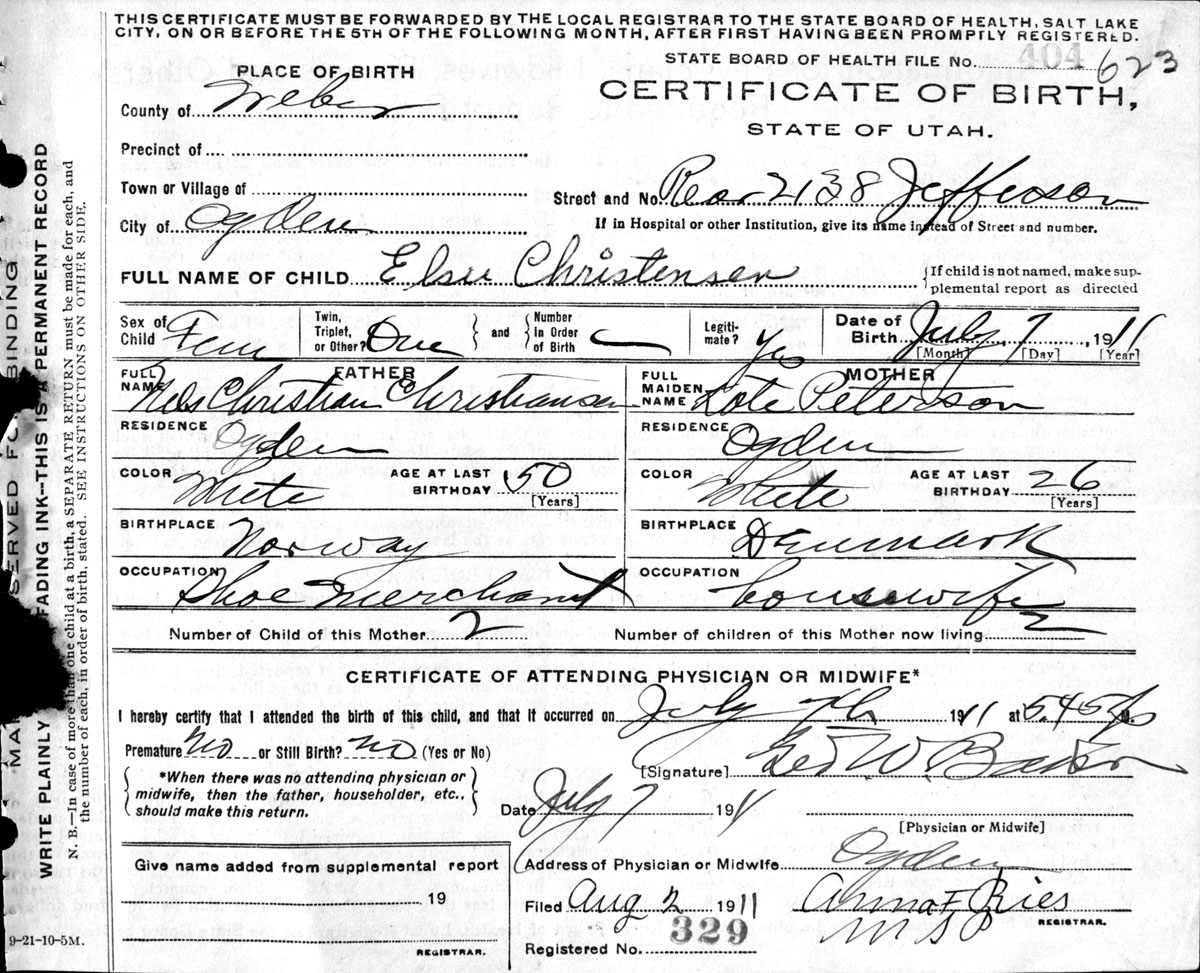 THIS CERTIFICATE MUST BE FORWARDED BY THE LOCAL REGISTRAR TO THE STATE BOARD OF HEALTH, SALT LAKE
CITY, ON OR BEFORE THE 5TH OF THE FOLLOWING MONTH, AFTER FIRST HAVING BEEN PROMPTLY REGISTERED.
STATE BOARD OF HEALTH FILE No. 404 623
PLACE OF BIRTH
CERTIFICATE OF BIRTH,
County of Weber
STATE OF UTAH.
Precinct of
Town or Village of
Street and No. Rear 2138 Jefferson
City of Ogden
If in Hospital or other Institution, give its name instead of Street and number.
FULL NAME OF CHILD Elsie Christensen
{If child is not named, make sup-
plemental report as directed
Sex of Child Fem
Twin, Triplet, or Other? One } and { Number in Order of Birth
Legiti-mate? Yes
Date of Birth July 7, 1911
[Month] [Day] [Year]
FATHER
FULL NAME Nels Christian Christiansen
RESIDENCE Ogden
COLOR White AGE AT LAST BIRTHDAY 50
[Years]
BIRTHPLACE Norway
OCCUPATION Shoe Merchant
MOTHER
FULL MAIDEN NAME Peterson
RESIDENCE Ogden
COLOR White AGE AT LAST BIRTHDAY 26
[Years]
BIRTHPLACE Denmark
OCCUPATION housewife
Number of Child of this Mother 2 Number of children of this Mother now living 2
CERTIFICATE OF ATTENDING PHYSICIAN OR MIDWIFE*
I hereby certify that I attended the birth of this child, and that it occurred on July 7th 1911 at 5.45
Premature No or Still Birth? No (Yes or No)
[Signature] Geo. W. Baker
*When there was no attending physician or
midwife, then the father, householder, etc.,
should make this return.
Date July 7 1911
[Physician or Midwife]
Give name added from supplemental report
19
REGISTRAR.
Address of Physician or Midwife Ogden
Filed Aug 2 1911 Anna F Ries
REGISTRAR.
Registered No. 329
9-21-10-5M.
MARGIN RESERVED FOR BINDING
WRITE PLAINLY FADING INK--THIS IS A PERMANENT RECORD
N. B.--In case of more than one child at a birth, a SEPARATE RETURN must be made for each, and
the number of each, in order of birth, stated. SEE INSTRUCTIONS ON OTHER SIDE.